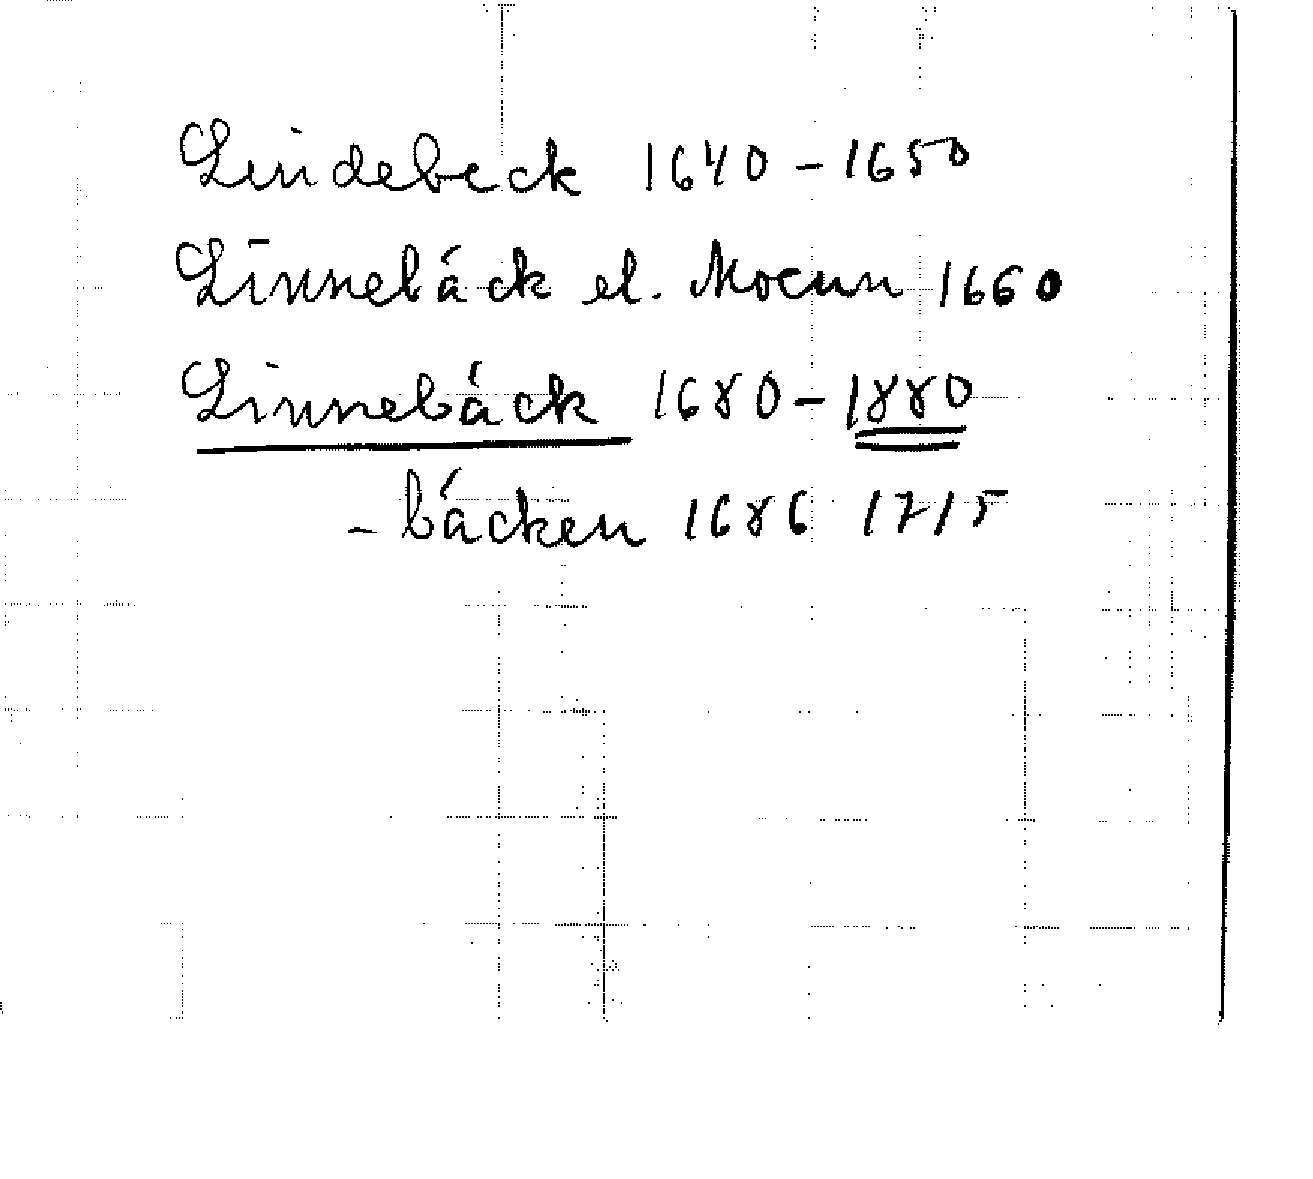 Lindebeck 1640-1650
Linnebäck el. Mocun 1660
Linnebäck 1680-1880
-bäcken 1686 1715